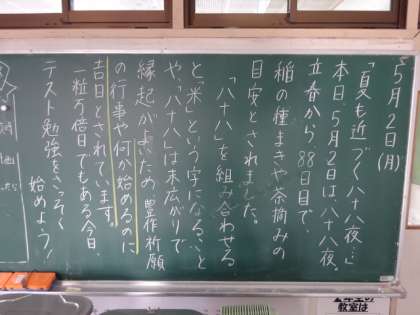 5月2日(月)
「夏も近づく八十八夜…」
本日、5月2日は、八十八夜。
立春から88日目で、
稲の種まきや茶摘みの
目安とされました。
「八十八」を組み合わせる
と「米」という字になること
や、「八十八」は末広がりで
縁起がよいため 豊作祈願
の行事や何か始めるのに
吉日とされています。
一粒万倍日でもある今日、
テスト勉強をさっそく
始めよう!
教室は